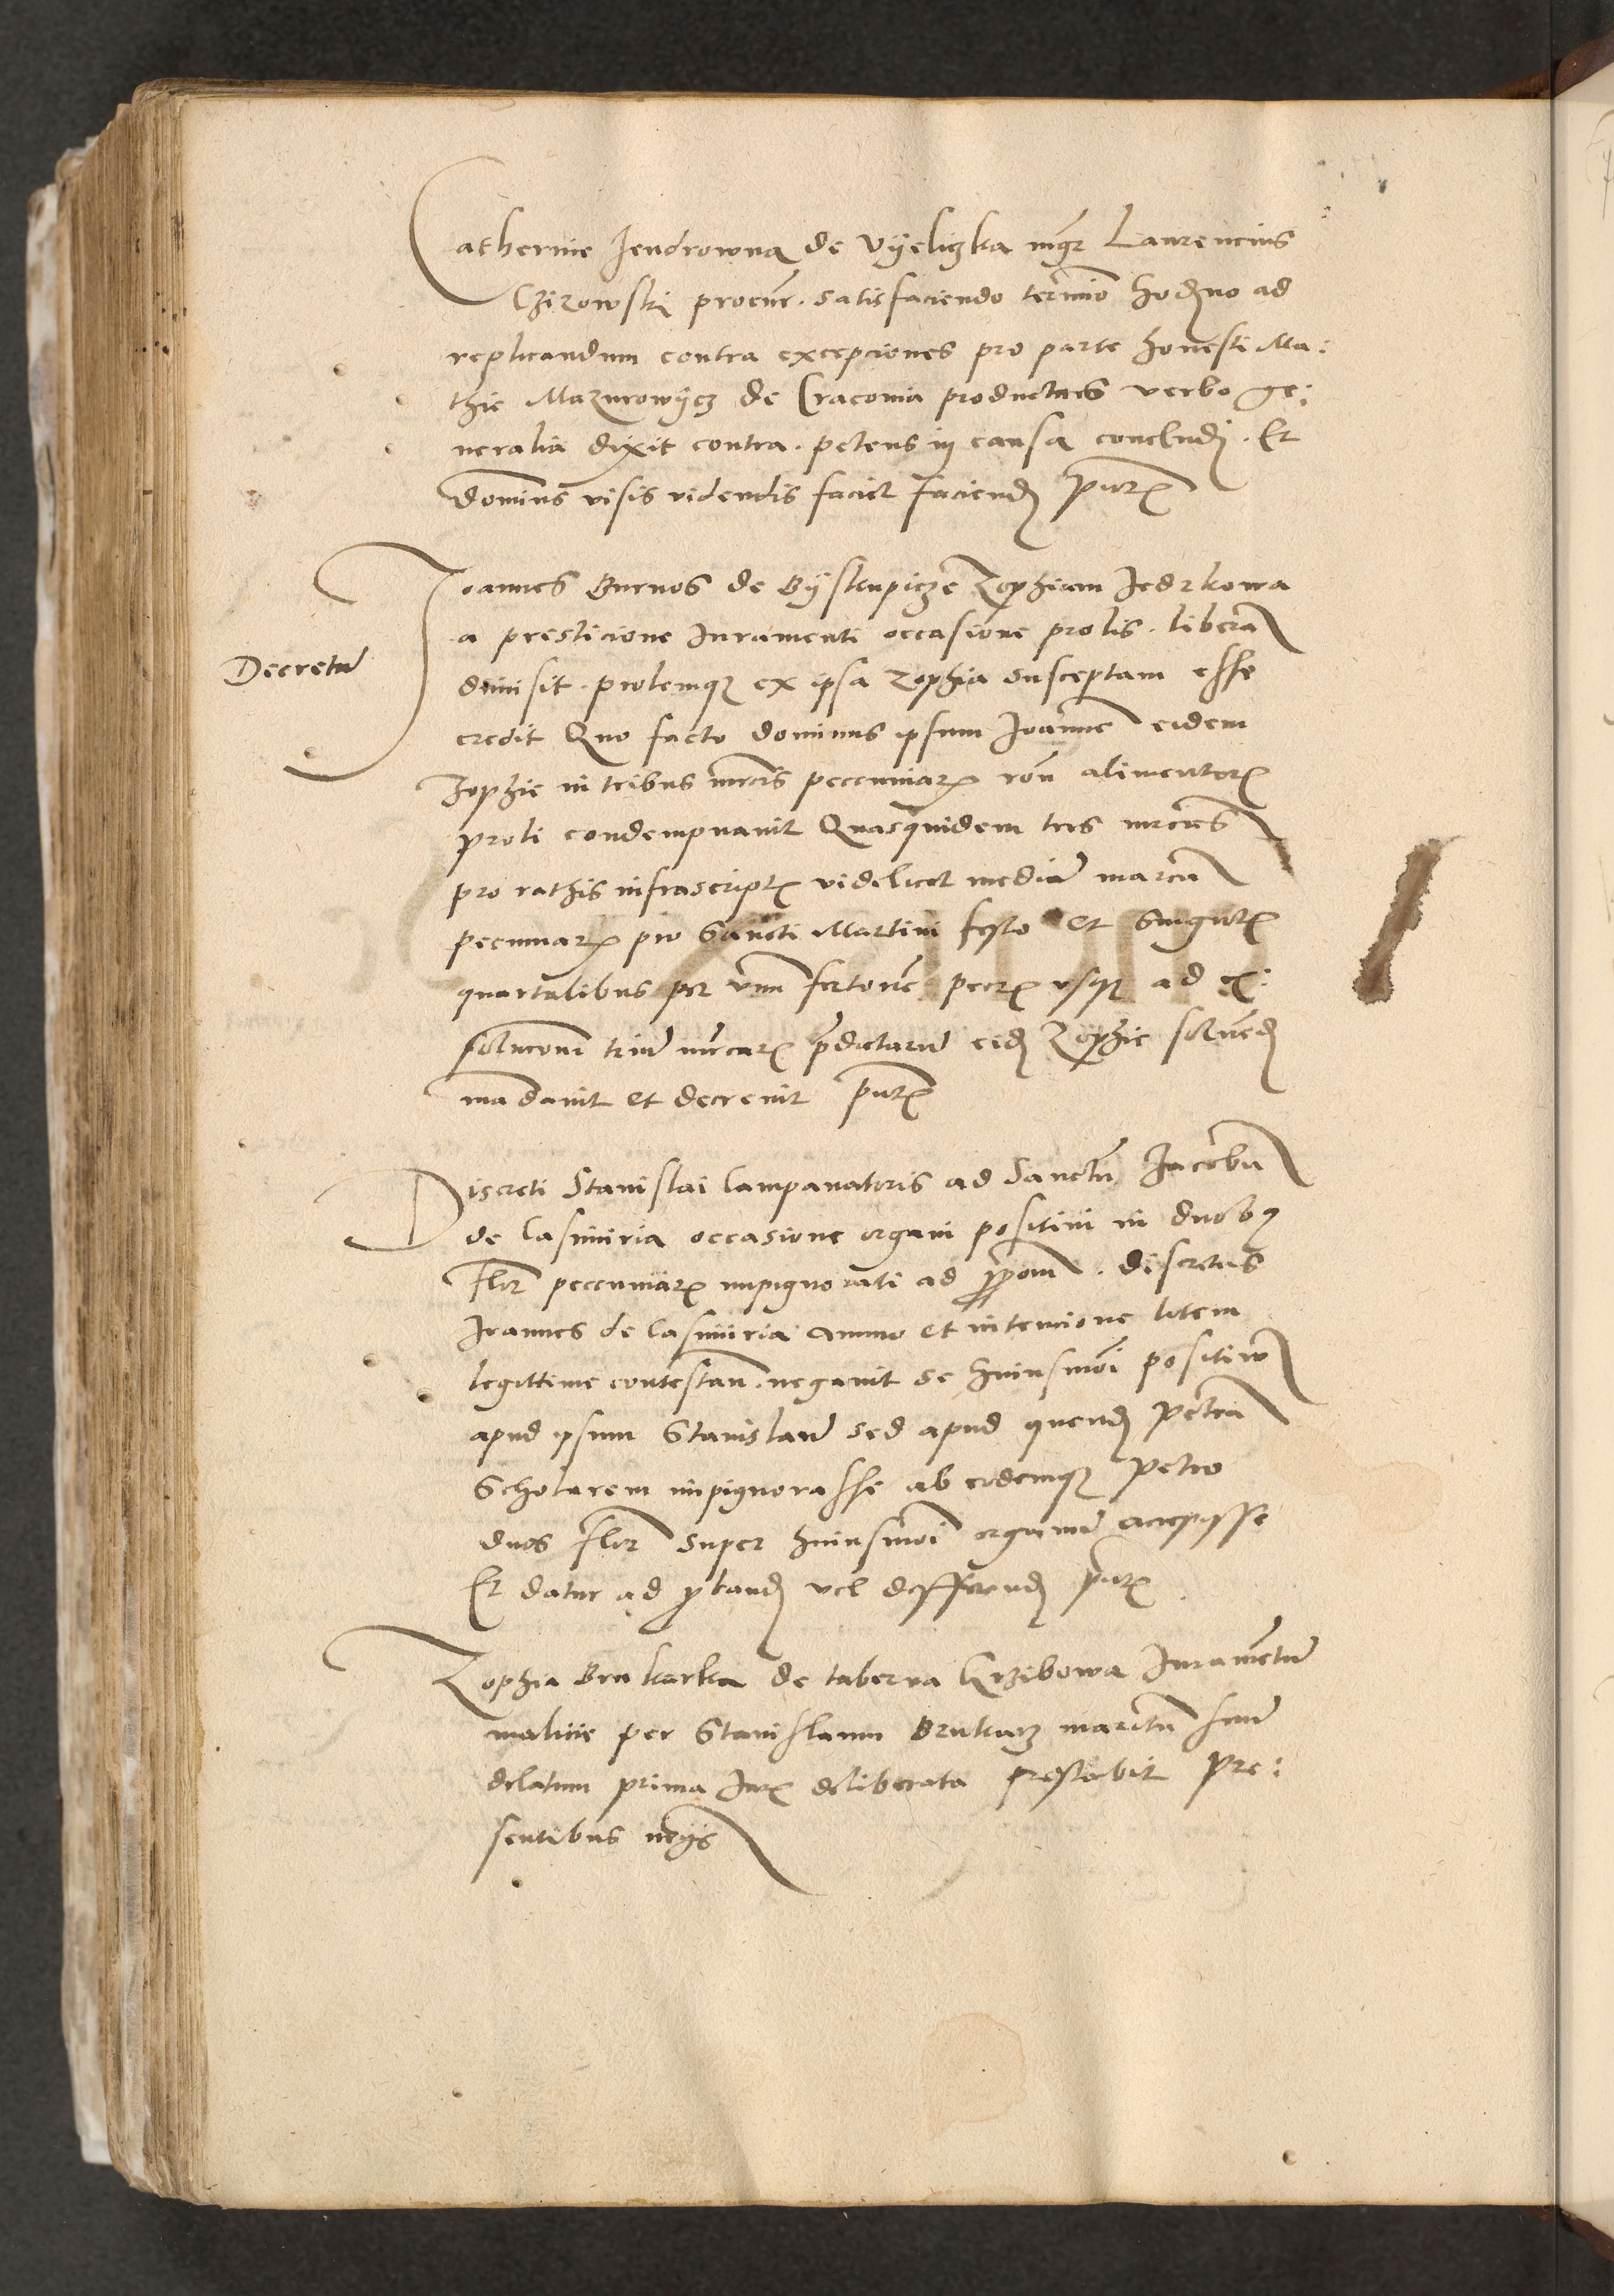 Catherine Jendrowna de Vyeliczka mgr Laurencius
Czirowski procur. satisfaciendo termino hodierno ad
replicandum contra excepciones pro parte honesti Ma:
thie Mazurowycz de Cracovia productas verbo ge:
neralia dixit contra. petens in causa concludi. Et
dominus visis videndis faciet faciend pntt
Joannes Burnos de Byskupicze Zophiam Jedrkowa
a presticione Juramenti occasione prolis. libera
Decretu
dimisit. prolemque ex ipsa Zophia susceptam esse
credit Quo facto dominus ipsum Joanne eidem
Zophie in tribus mrcis peccuniar ron alimentor
proli condempnavit Quasquidem tres mrcas
pro rathis infrascript videlicet media marca
pecuniar pro Sancti Martini festo et Singul
quartalibus per unu fertone pecc usque ad ex:
solucom triu mrcar pdictaru eid Zophie solved
mandavit et decrevit pntt
Discreti Stanislai Campanatoris ad Sanctu Jacobu
de Casimiria occasione organi positivi in duobus
flor peccuniar impignorati ad ppom. discretus
Joannes de Casimiria animo et intencione litem
legittime contestan. negavit se huiusmoi positiw
apud ipsum Stanislau sed apud quend Petru
Scholarem impignorasse ab eodemque Petro
duos flor super huiusmoi organu accepisse
Et datur ad pband vel defferend pntt
Zophia Brukarka de taberna Krzibowa Juramentu
malicie per Stanislaum Brukarz maritu suu
delatum prima Jur deliberata prestabit Pre:
sentibus